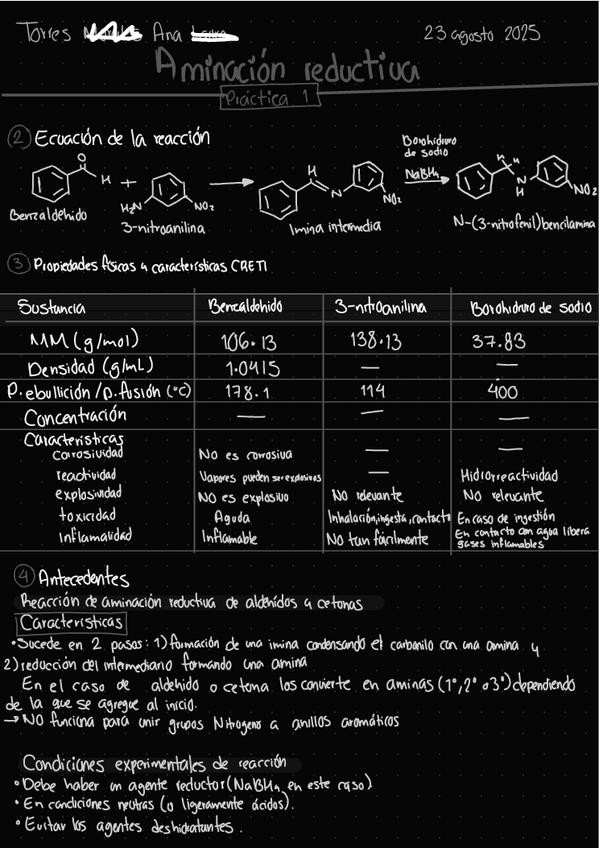 Torres Ana
23 agosto 2025
Aminación reductiva
Práctica 1
② Ecuación de la reacción
O
H
+
H₂N
NO₂
H
N
NO₂
Borohidruro
de sodio
NaBH₄
H H
N
H
NO₂
Benzaldehido
3-nitroanilina
Imina intermedia
N-(3-nitrofenil)bencilamina
③ Propiedades físicas y características CRETI
Sustancia Benzaldehido 3-nitroanilina Borohidruro de sodio
MM (g/mol) 106.13 138.13 37.83
Densidad (g/mL) 1.0415 — —
P. ebullición/p. fusión (°C) 178.1 114 400
Concentración — — —
Características
corrosividad No es corrosiva — —
reactividad Vapores pueden ser explosivos — Hidrorreactividad
explosividad No es explosivo No relevante No relevante
toxicidad Aguda Inhalación, ingesta, contacto En caso de ingestión
Inflamalidad Inflamable No tan fácilmente En contacto con agua libera
gases inflamables
④ Antecedentes
Reacción de aminación reductiva de aldehídos y cetonas
Características
•Sucede en 2 pasos: 1) formación de una imina condensando el carbonilo con una amina y
2) reducción del intermediario formando una amina
En el caso de aldehído o cetona los convierte en aminas (1°, 2° o 3°) dependiendo
de la que se agregue al inicio.
→ NO funciona para unir grupos Nitrógeno a anillos aromáticos
Condiciones experimentales de reacción
• Debe haber un agente reductor (NaBH₄ en este caso)
• En condiciones neutras (o ligeramente ácidos).
• Evitar los agentes deshidratantes.